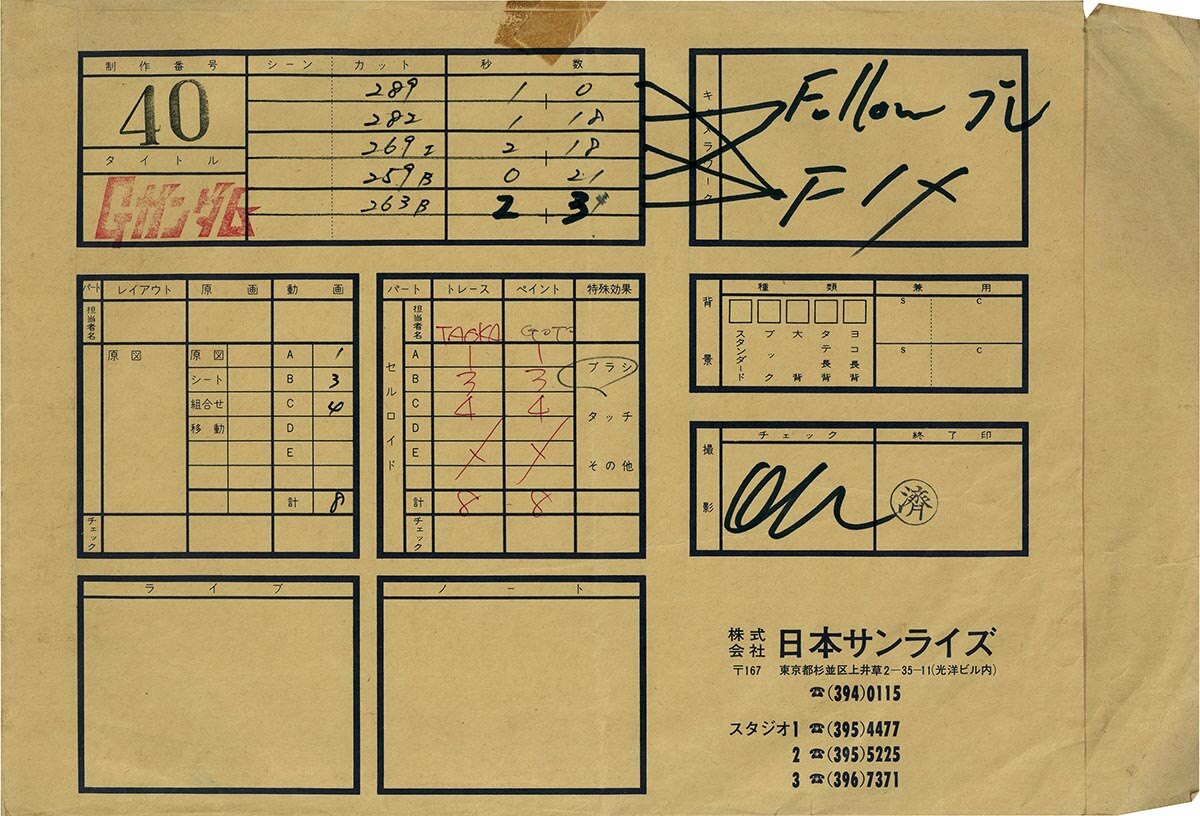 制作番号 シーン カット 秒 数
40
タイトル
Gガンダム
289 1+0
282 1 18
269 I 2+18
259 B 0 21
263 B 2+3
キャメラワーク
Follow
FIX
パート レイアウト 原画 動画
担当者名
原図 原図 A 1
シート B 3
組合せ C 4
移動 D
E
計 8
チェック
パート トレース ペイント 特殊効果
担当者名 TAOKA GOTO
セルロイド
A 1 1
B 3 3 ブラシ
C 4 4 タッチ
D
E その他
計 8 8
チェック
背景
種類 兼用
S C
スタンダード ブック 大背 タテ長背 ヨコ長背
S C
撮影
チェック 終了印
済
ライブ
ノート
株式会社 日本サンライズ
〒167 東京都杉並区上井草2-35-11(光洋ビル内)
☎(394)0115
スタジオ1 ☎(395)4477
2 ☎(395)5225
3 ☎(396)7371